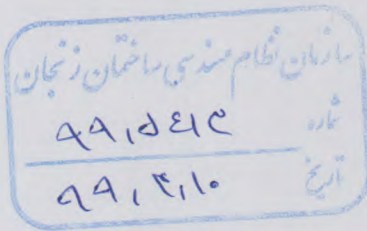 سازمان نظام مهندسی ساختمان زنجان
شماره
تاریخ ۹۹,۳,۱۰